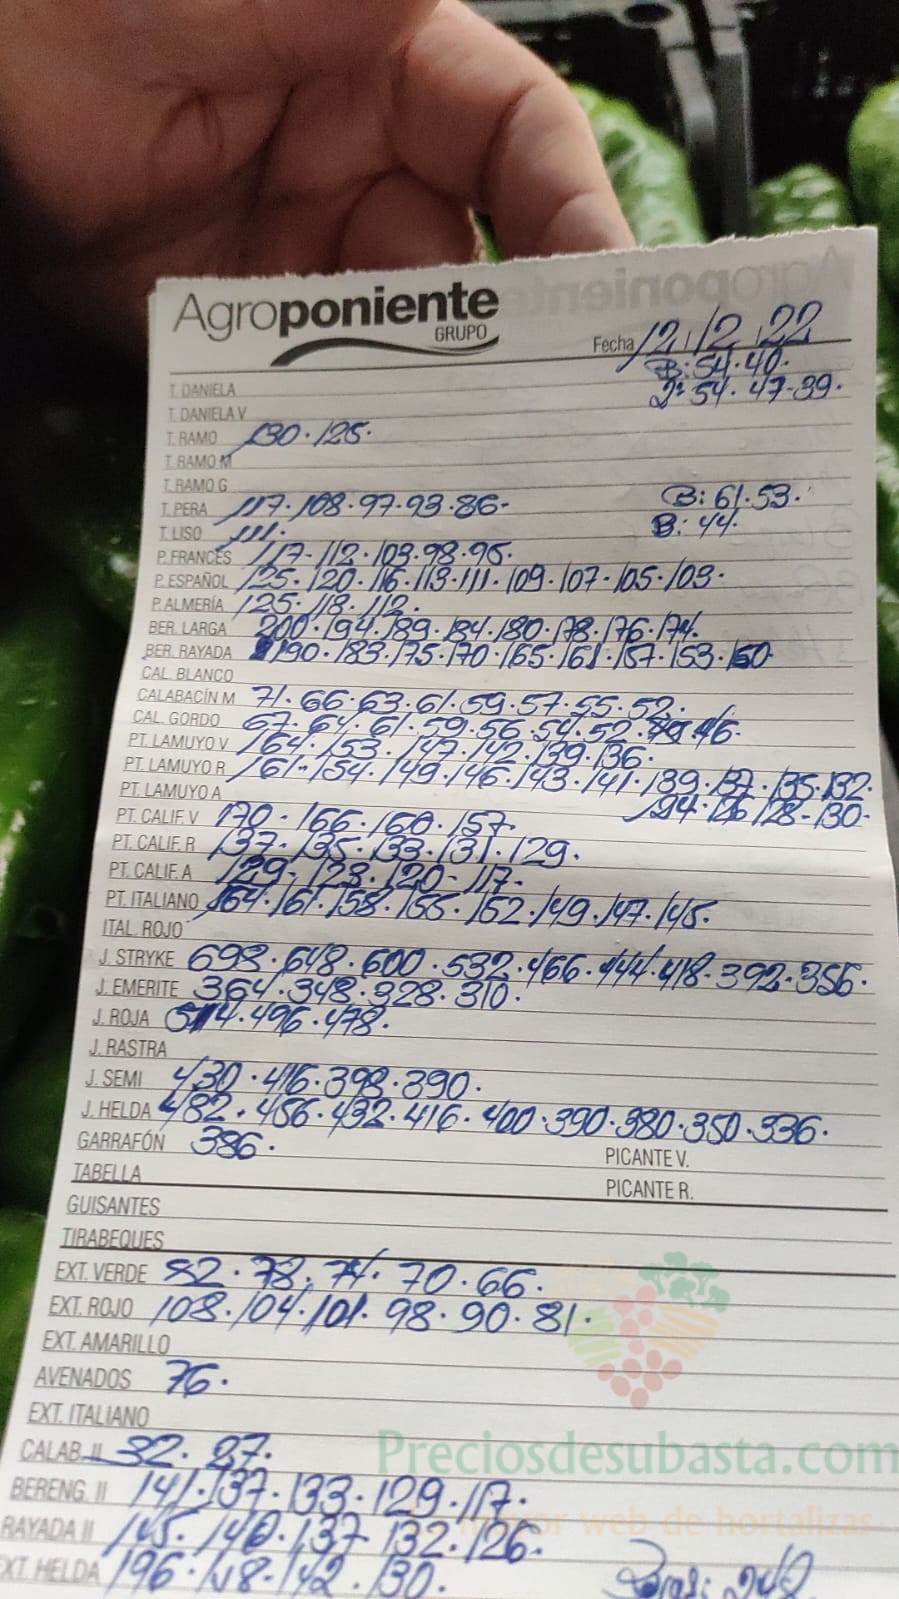 Agroponiente
GRUPO
Fecha 12 12 22
B: 54.40.
2ª 54.47.39.
T. DANELA
T. DANIELA V
T. RAMO 130.125.
T. RAMO M
T. RAMO G
T. PERA 117.108.97.93.86- B: 61.53.
T. LISO 111. B: 44.
P. FRANCÉS 117-112.103.98.95.
P. ESPAÑOL 125.120.116.113.111.109.107.105.103.
P. ALMERÍA 125.118.112.
BER. LARGA 200.194.189.184.180.178.176.174.
BER. RAYADA 190.183.175.170.165.161.157.153.150
CAL. BLANCO
CALABACÍN M 71.66.63.61.59.57.55.52.
CAL. GORDO 67.64.61.59.56.54.52.49.46.
PT. LAMUYO V 164.153.147.142.139.136.
PT. LAMUYO R 161-154.149.146.143.141.139.137.135.132.
PT. LAMUYO A 124.126.128-130-
PT. CALIF. V 170.166.160.157.
PT. CALIF. R 137-135.133.131.129.
PT. CALIF. A 129-123.120-117-
PT. ITALIANO 164.161.158.155.152.149.147.145.
ITAL. ROJO
J. STRYKE 698.648.600.532.466.444.418-392.356.
J. EMERITE 364.348.328.310.
J. ROJA 514.496.478.
J. RASTRA
J. SEMI 430.416.398.390.
J. HELDA 482.456.432.416.400.390.380.350.336.
GARRAFÓN 386. PICANTE V.
TABELLA PICANTE R.
GUISANTES
TIRABEQUES
EXT. VERDE 82.78.74.70.66.
EXT. ROJO 108.104.101.98.90.81.
EXT. AMARILLO
AVENADOS 76.
EXT. ITALIANO
CALAB. II 32.27.
Preciosdesubasta.com
BERENG. II 141.137.133.129.117.
or web de hortalizas
RAYADA II 145.140.137-132.126.
EXT. HELDA 196.148.142.130.